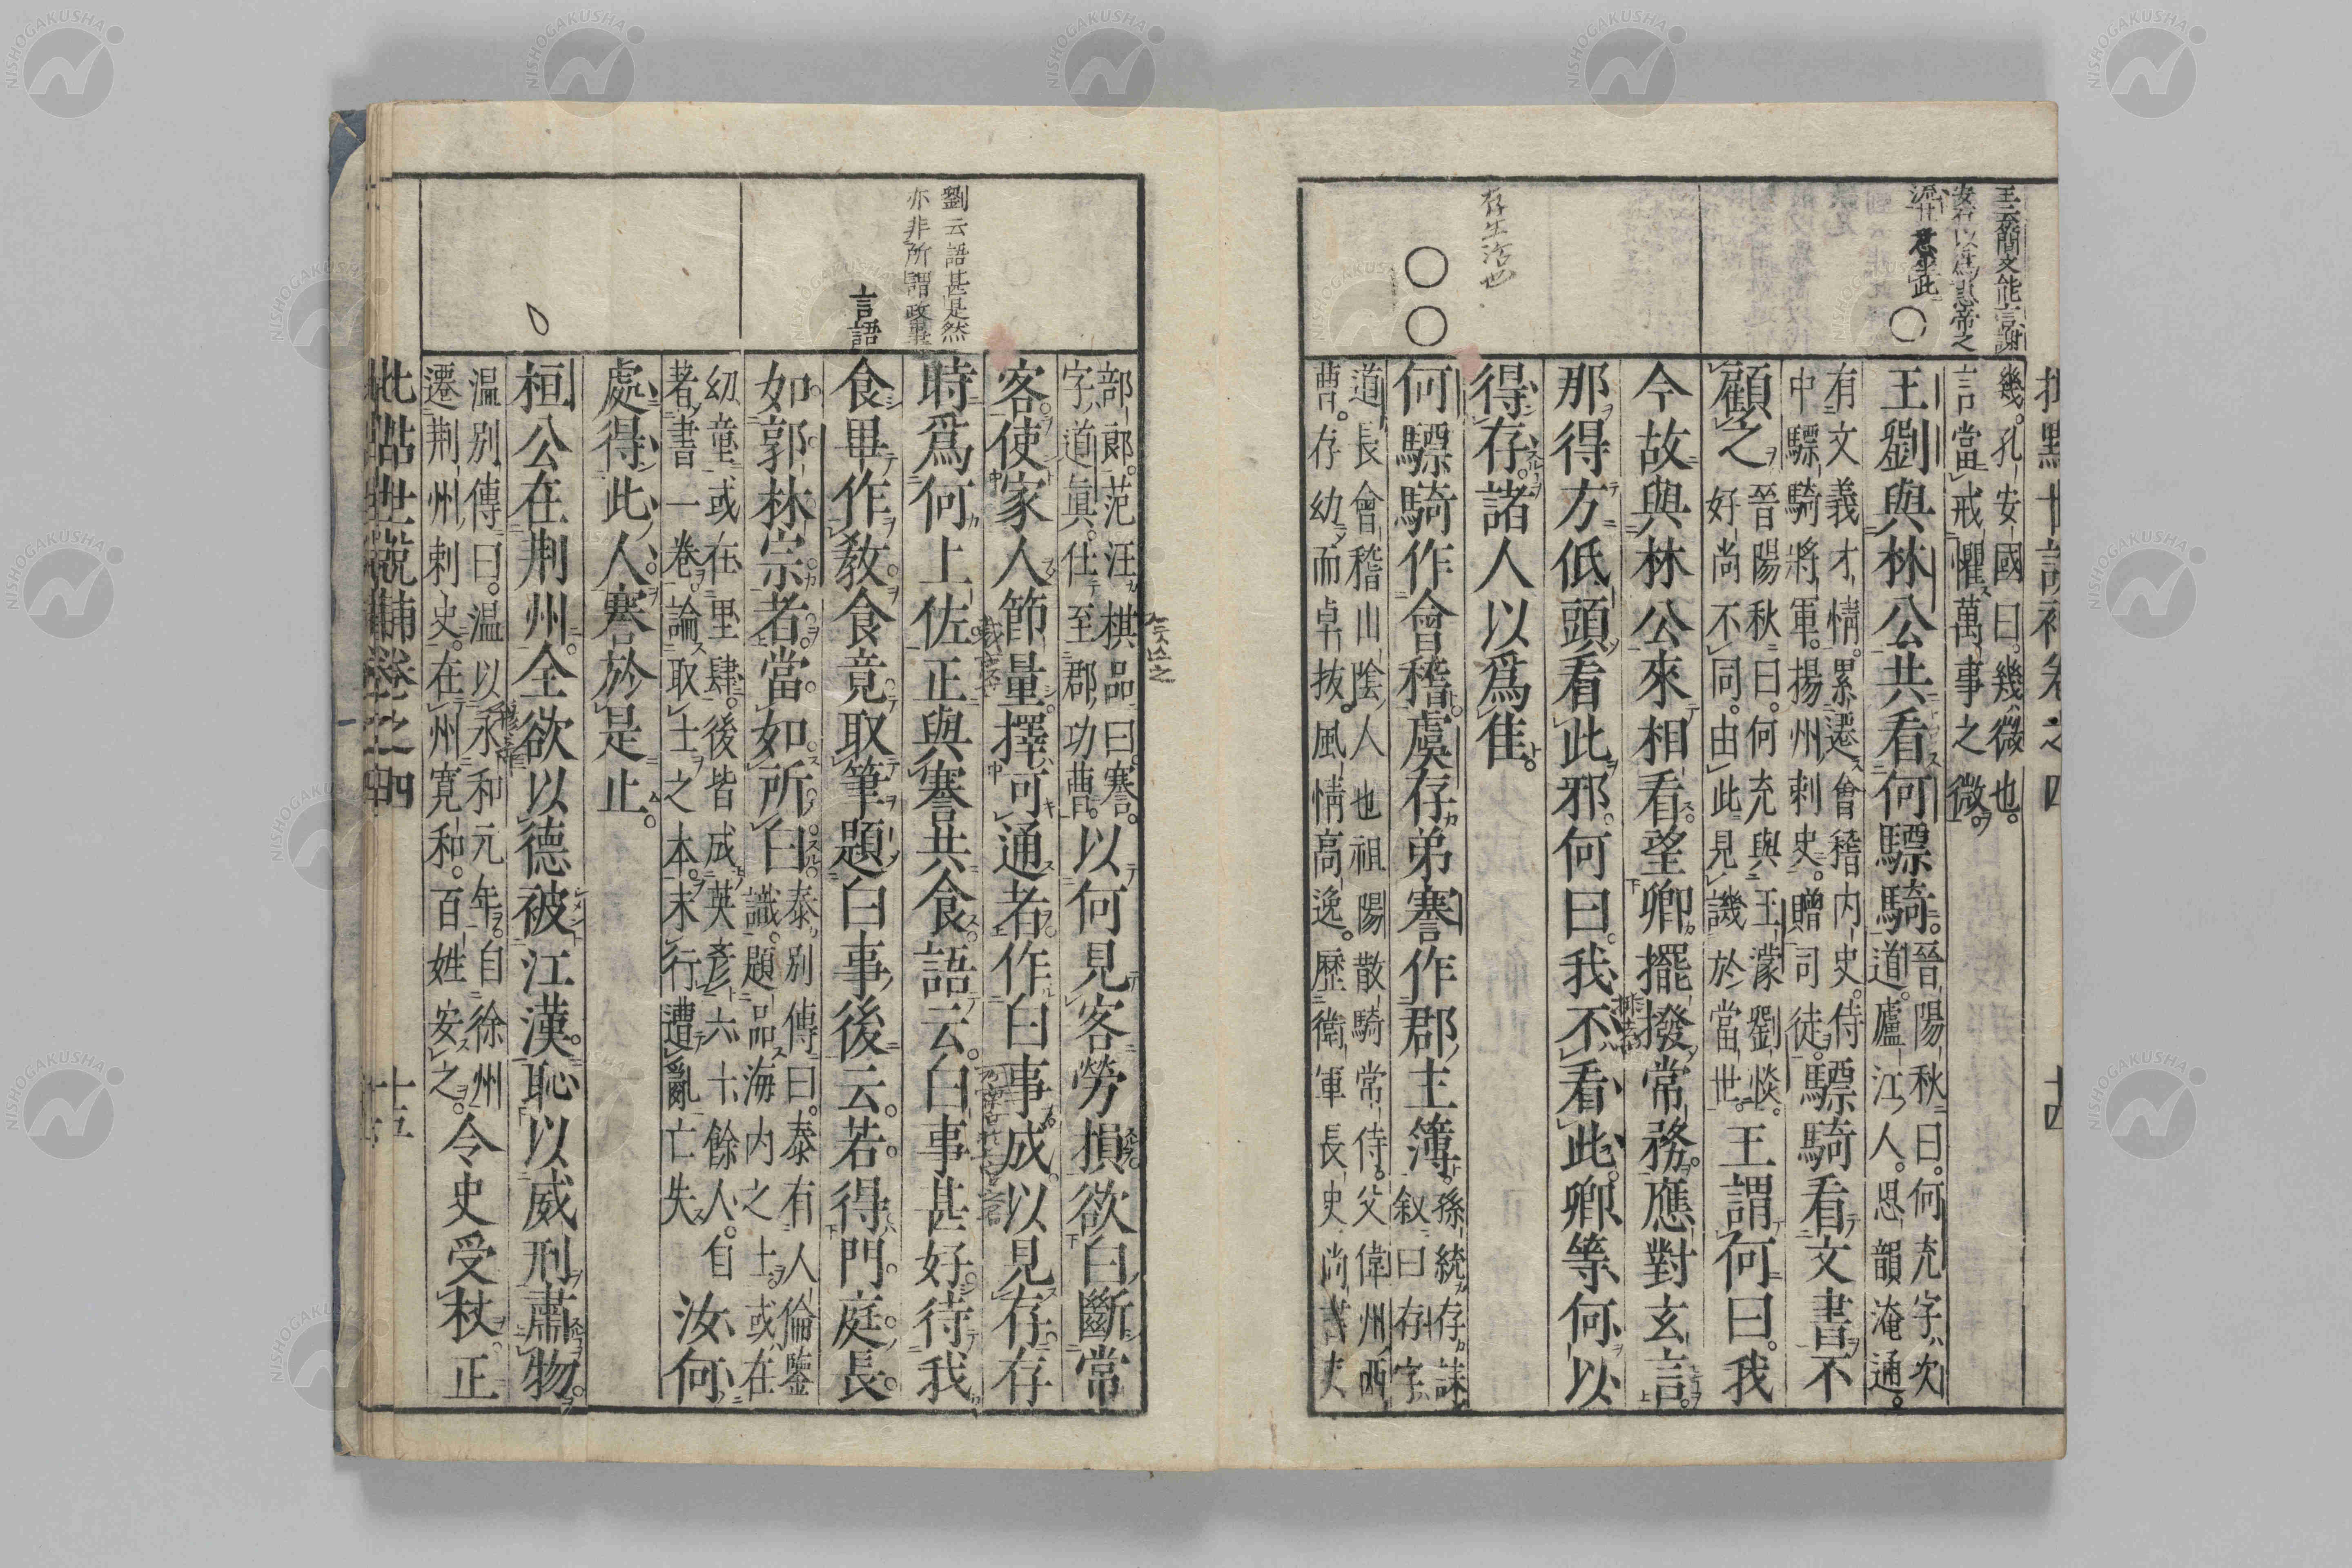 王云簡文能言謝
言語
劉云語甚是然
亦非所謂政事
存生活也
幾孔安國曰幾微也
言當戒懼萬事之微
王劉與林公共看何驃騎
晉陽秋曰何充字次
道廬江人思韻淹通
有文義才情累遷會稽内史侍
中驃騎將軍揚州刺史贈司徒
驃騎看文書不
顧之
晉陽秋曰何充與王濛劉惔
好尚不同由此見譏於當世
王謂何曰我
今故與林公來相看望卿擺撥常務應對玄言
那得方低頭看此邪何曰我不看此卿等何以
得存諸人以爲佳
何驃騎作會稽虞存弟謇作郡主簿
孫統存誄
叙曰存字
道長會稽山陰人也祖陽散騎常侍父偉州西
曹存幼而卓拔風情高逸歷衛軍長史尚書吏
部郎范汪棋品曰謇
字道眞仕至郡功曹
以何見客勞損欲白斷常
客使家人節量擇可通者作白事成以見存存
時爲何上佐正與謇共食語云白事甚好待我
食畢作教食竟取筆題白事後云若得門庭長
如郭林宗者當如所白
泰別傳曰泰有人倫鑒
識題品海内之士或在
幼童或在里肆後皆成英彦六十餘人自
著書一卷論取士之本末行遭亂亡失
汝何
處得此人謇於是止
桓公在荆州全欲以德被江漢恥以威刑肅物
温別傳曰温以永和元年自徐州
遷荆州刺史在州寛和百姓安之
令史受杖正
批點世說補卷之四
十五